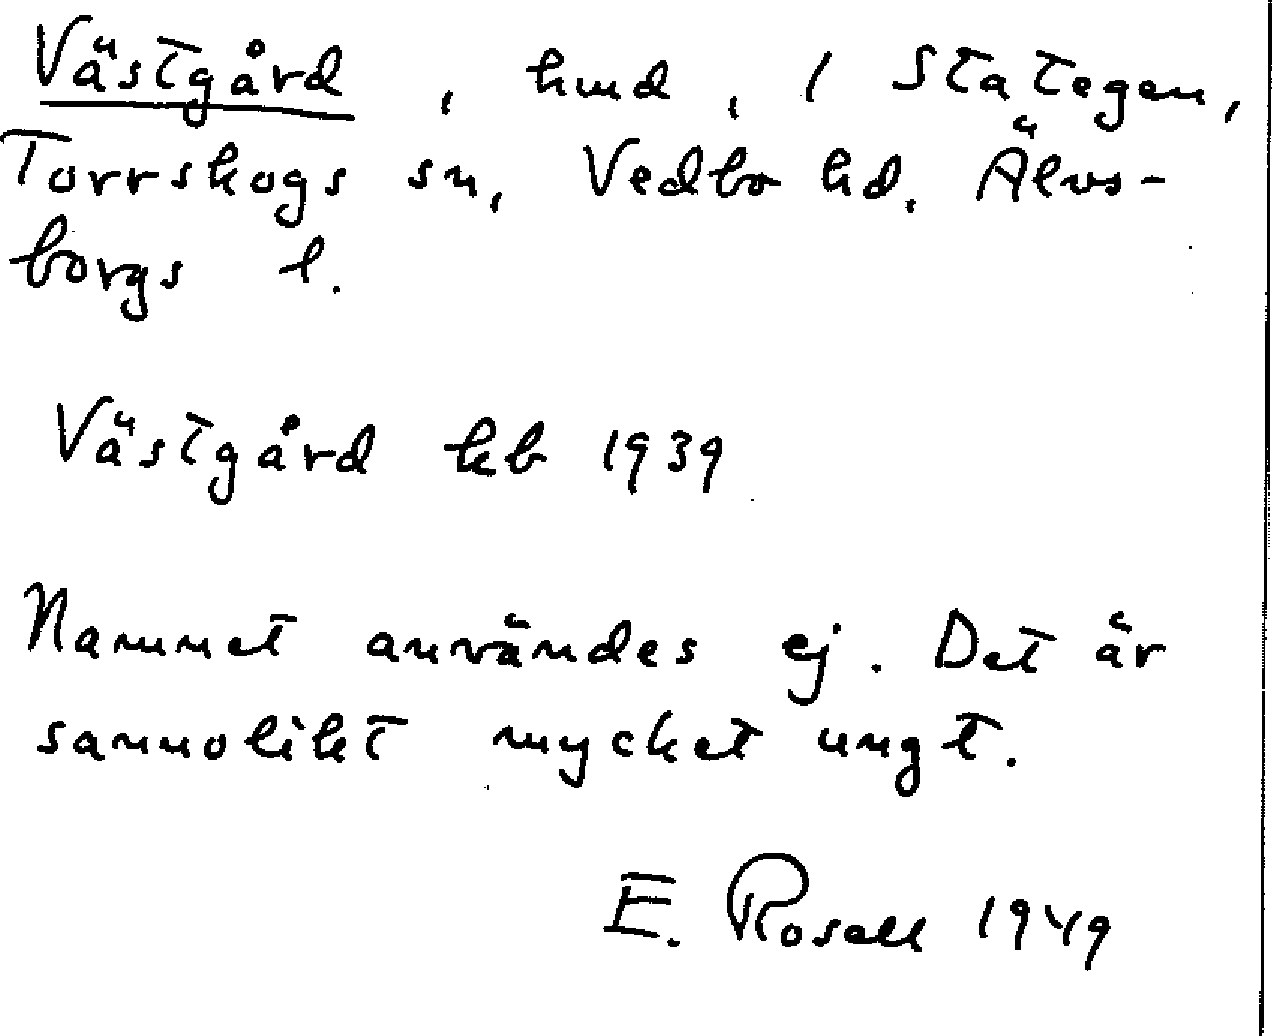 Västgård, hmd, 1 Stategen,
Torrskogs sn, Vedbo hd. Älvs-
borgs l.
Västgård kb 1939
Namnet användes ej. Det är
sannolikt mycket ungt.
E. Rosell 1949